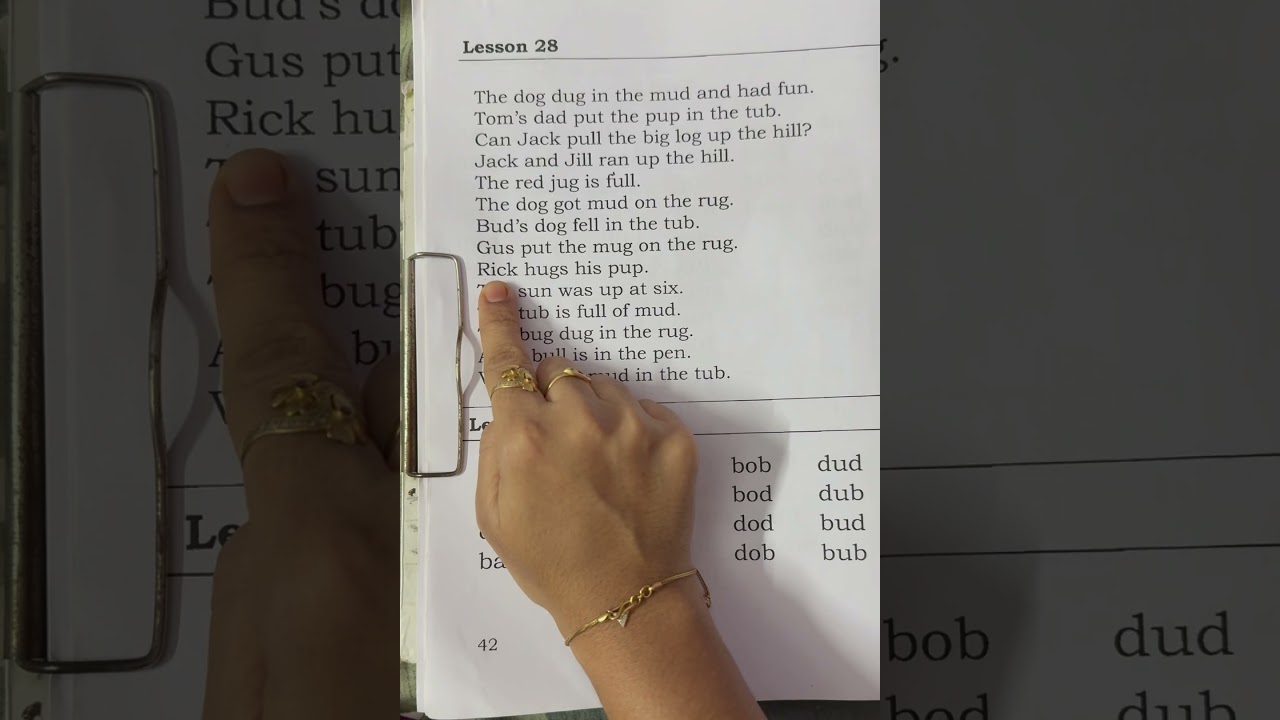 Lesson 28
The dog dug in the mud and had fun.
Tom's dad put the pup in the tub.
Can Jack pull the big log up the hill?
Jack and Jill ran up the hill.
The red jug is full.
The dog got mud on the rug.
Bud's dog fell in the tub.
Gus put the mug on the rug.
Rick hugs his pup.
sun was up at six.
tub is full of mud.
bug dug in the rug.
A bull is in the pen.
mud in the tub.
bob dud
bod dub
dod bud
dob bub
42